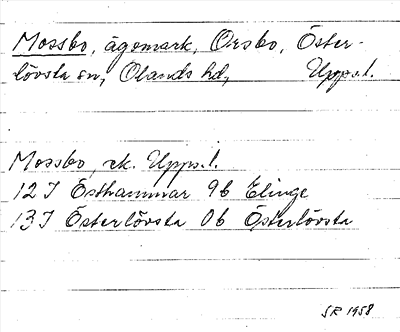 Mossbo, ägomark, Orsbo, Öster-
lövsta sn, Olands hd, Upps.l.
Mossbo, ek. Upps.l.
12 I Östhammar 9b Elinge
13 I Österlövsta 0b Österlövsta
SR 1958